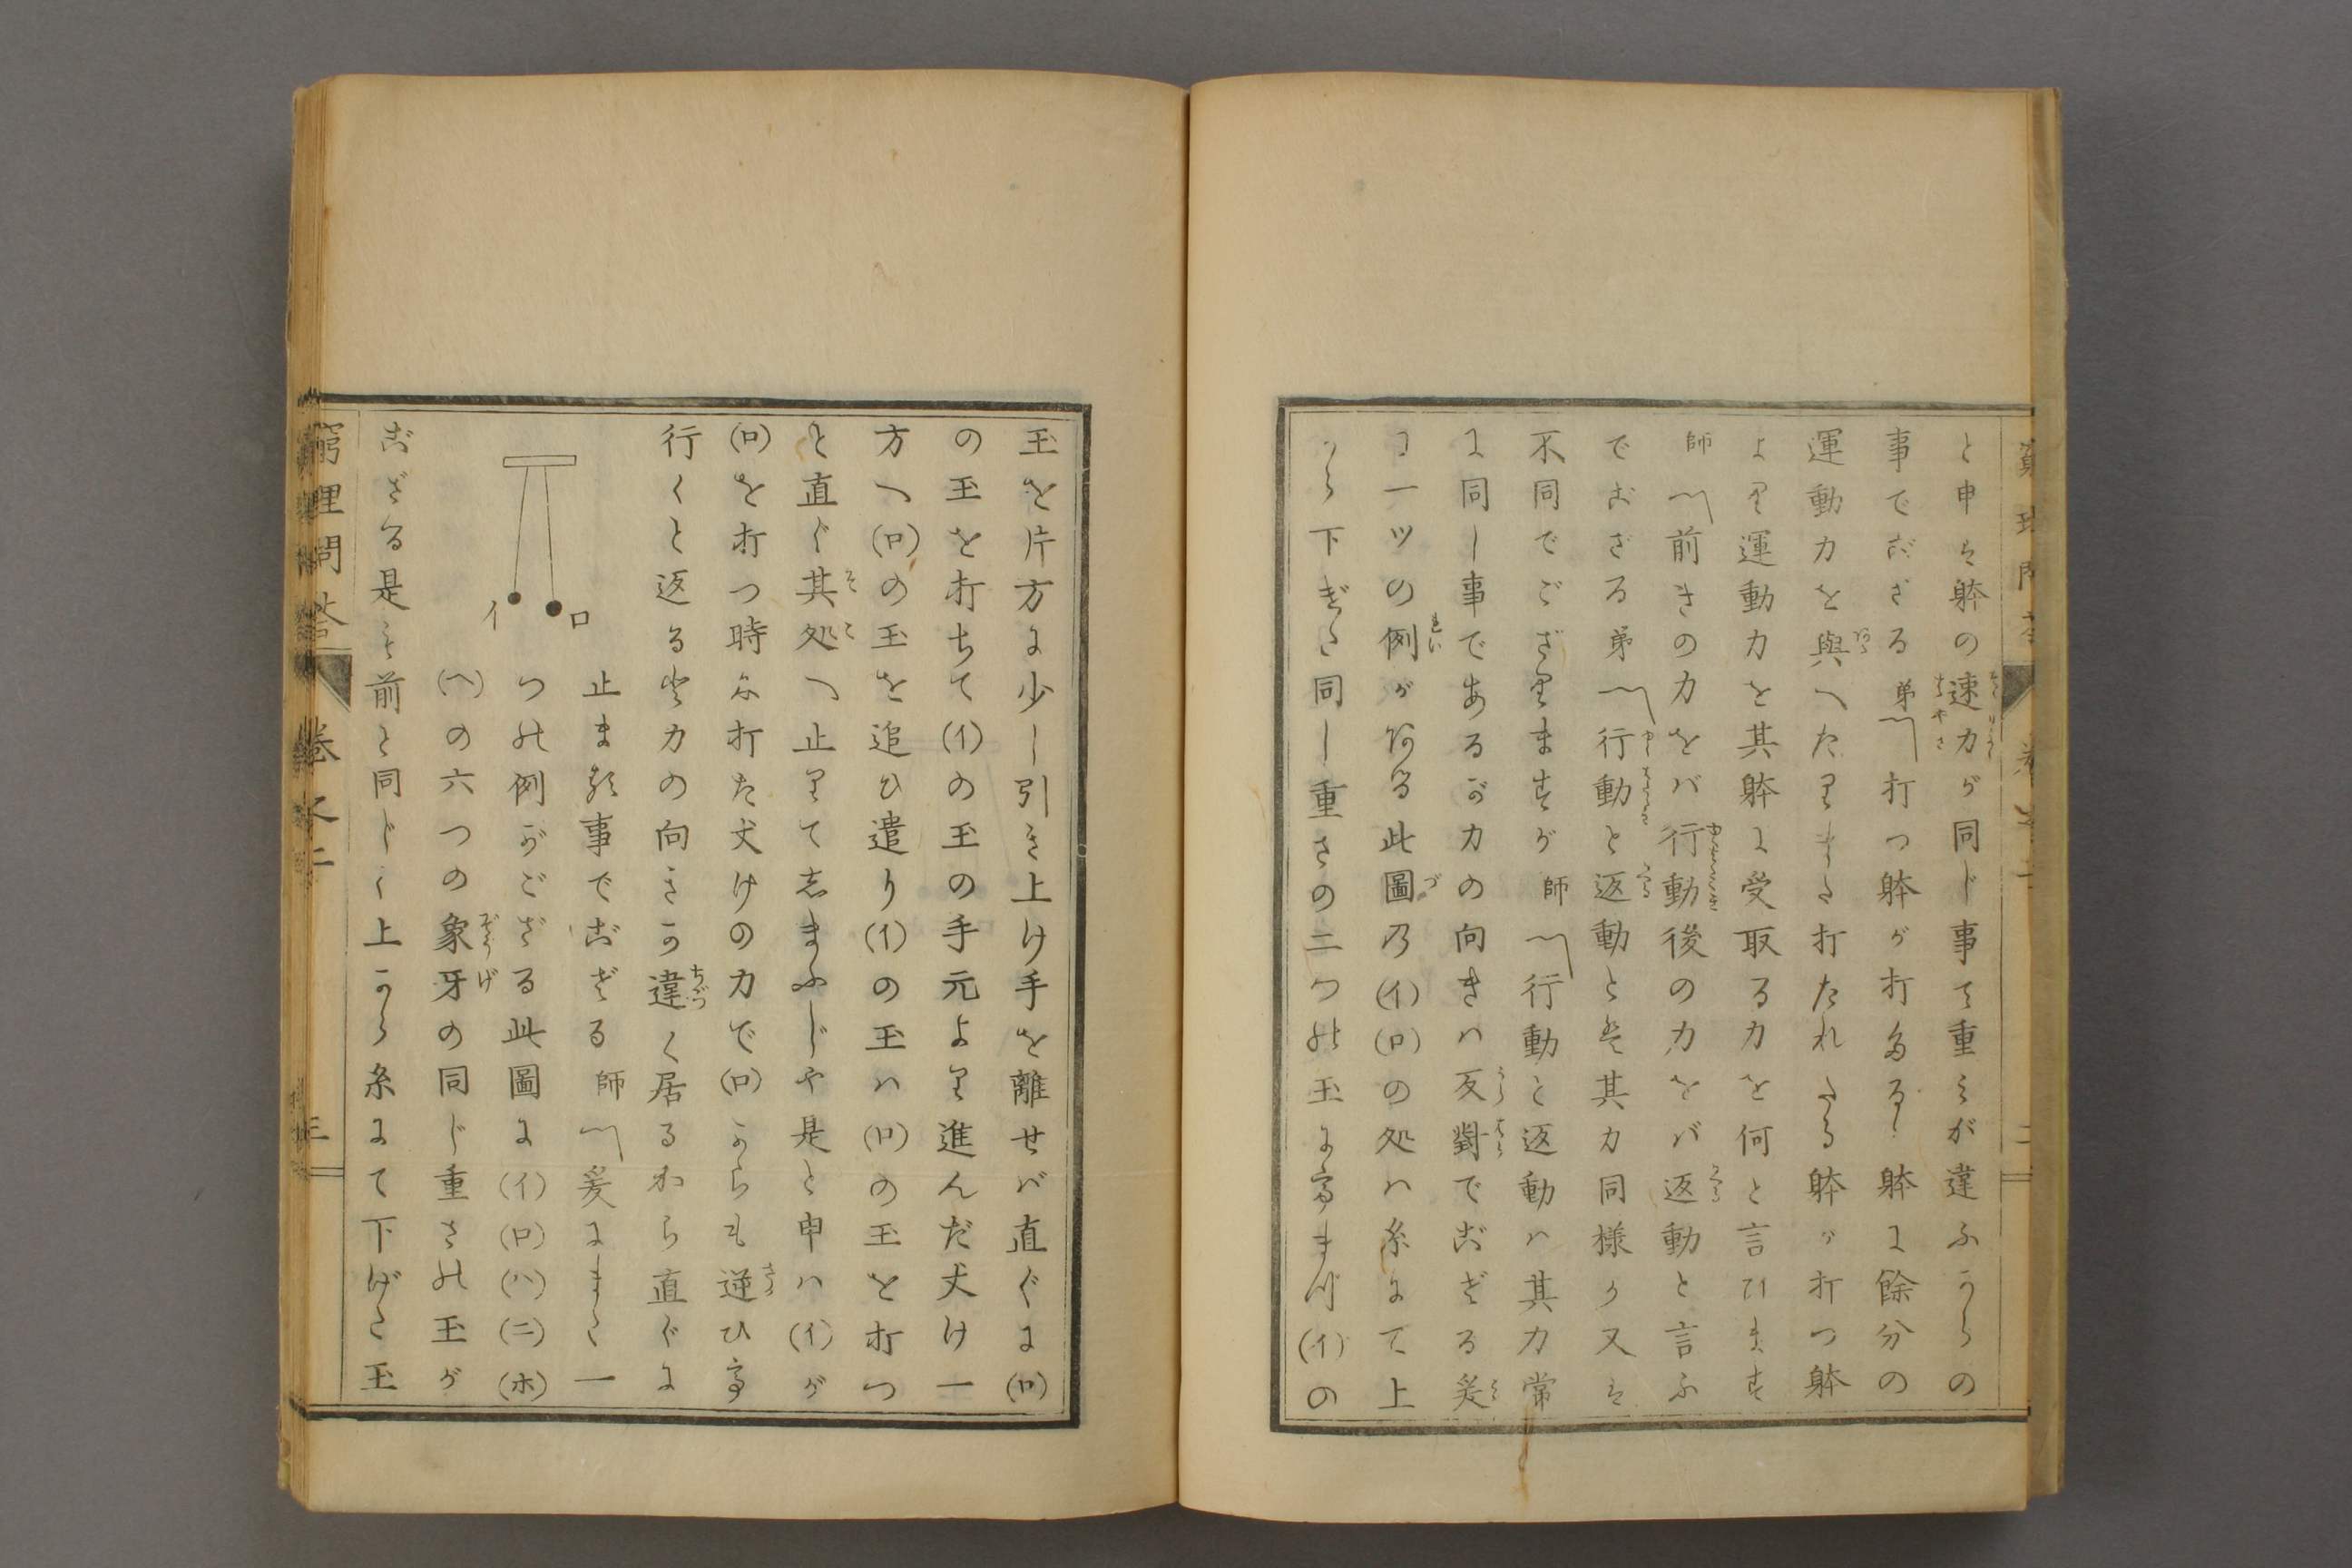 と申は躰の速力が同じ事で重みが違ふからの
事でござる 弟 打つ躰が打るゝ躰に餘分の
運動力を與へたりまた打たれたる躰が打つ躰
より運動力を其躰に受取る力を何と言ひます
師 前きの力をバ行動後の力をバ返動と言ふ
でござる 弟 行動と返動とは其力同様か又は
不同でござりますが 師 行動と返動ハ其力常
に同し事であるが力の向きハ反對でござる爰
に一ツの例がある此圖乃(イ)(ロ)の処ハ糸にて上
から下ぎた同し重さの二つの玉に
(イ)の
玉を片方に少し引き上け手を離せバ直ぐに(ロ)
の玉を打ちて(イ)の玉の手元より進んだ丈け一
方へ(ロ)の玉を追ひ遣り(イ)の玉ハ(ロ)の玉を打つ
と直ぐ其処へ止りて志まふじや是と申ハ(イ)が
(ロ)を打つ時に打た丈けの力で(ロ)からも逆ひ
行くと返る其力の向きか違く居るから直ぐに
イ ロ
止まる事でござる 師 爰にまた一
つの例がござる此圖に(イ)(ロ)(ハ)(ニ)(ホ)
(ヘ)の六つの象牙の同じ重さの玉が
ござる是も前と同じく上から糸にて下げた玉
窮理問答 卷之二 三